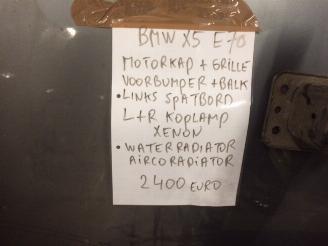 BMW X5 E70
MOTORKAP + GRILLE
VOORBUMPER + BALK
• LINKS SPATBORD
L+R KOPLAMP
XENON
• WATERRADIATOR
AIRCORADIATOR
2400 EURO